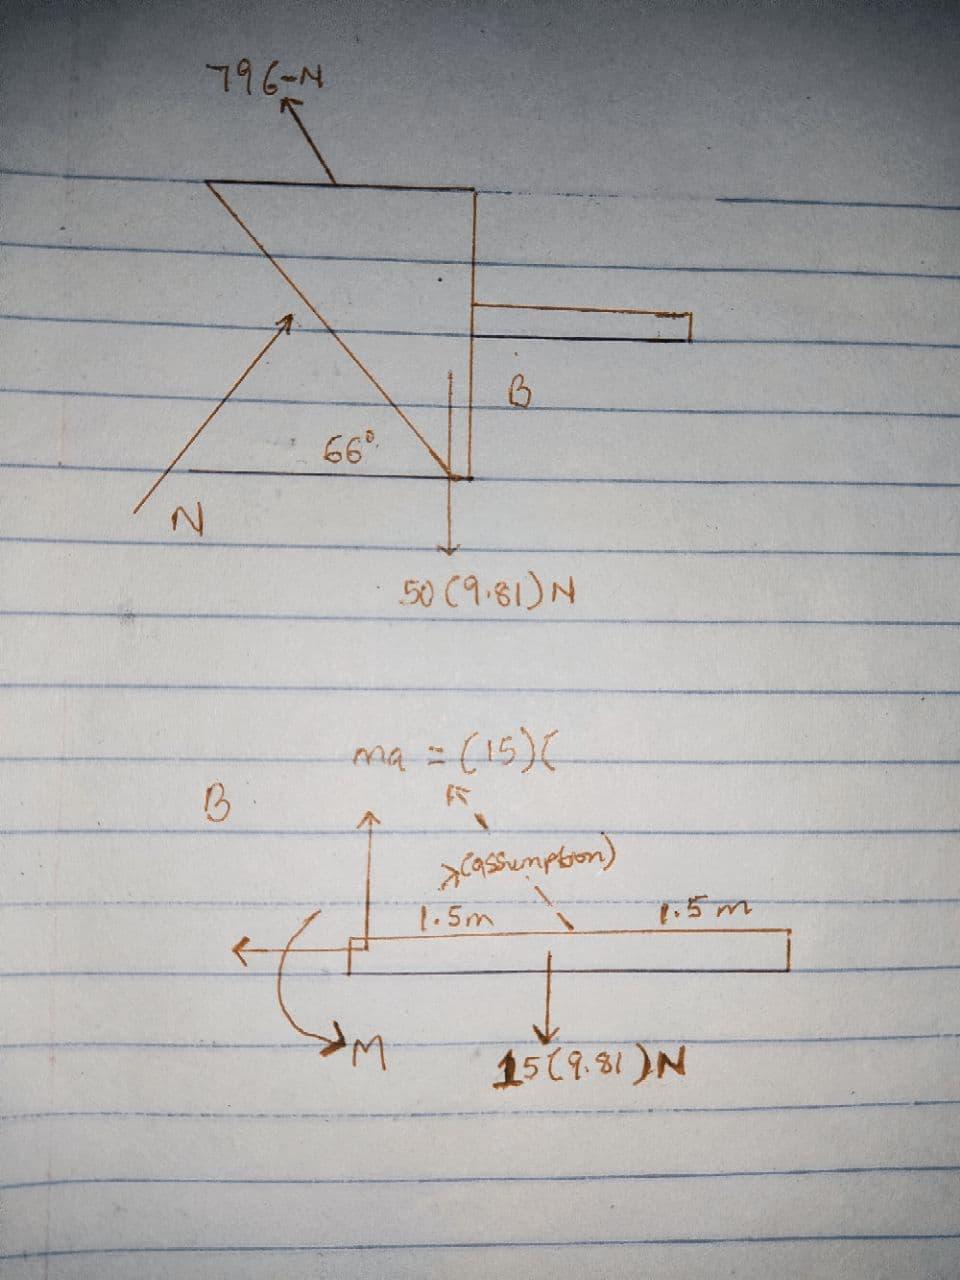 796-N
B
66°
N
50(9.81)N
ma = (15)(
B
(assumption)
1.5m 1.5m
M
15(9.81)N